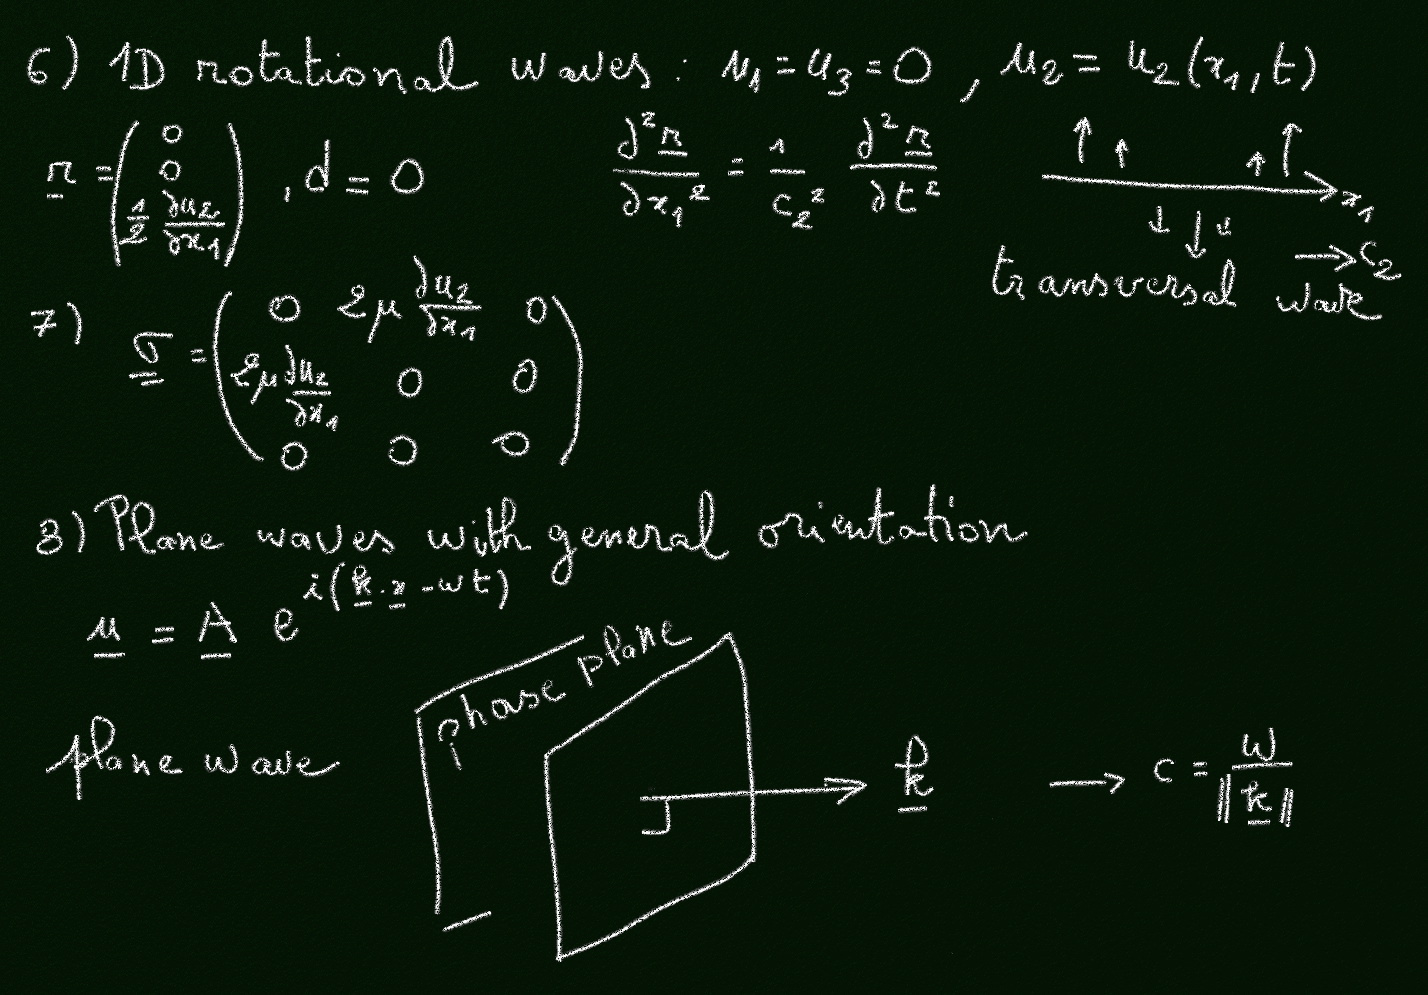 6) 1D rotational waves : u₁ = u₃ = 0 , u₂ = u₂(x₁, t)
r = ( 0 0 1/2 ∂u₂/∂x₁ ) , d = 0
∂²r/∂x₁² = 1/c₂² ∂²r/∂t²
x₁
→ c₂
transversal wave
7) σ = ( 0 2μ ∂u₂/∂x₁ 0
2μ ∂u₂/∂x₁ 0 0
0 0 0 )
8) Plane waves with general orientation
u = A e^{i(k·x - ωt)}
phase plane
plane wave
k → c = ω/‖k‖